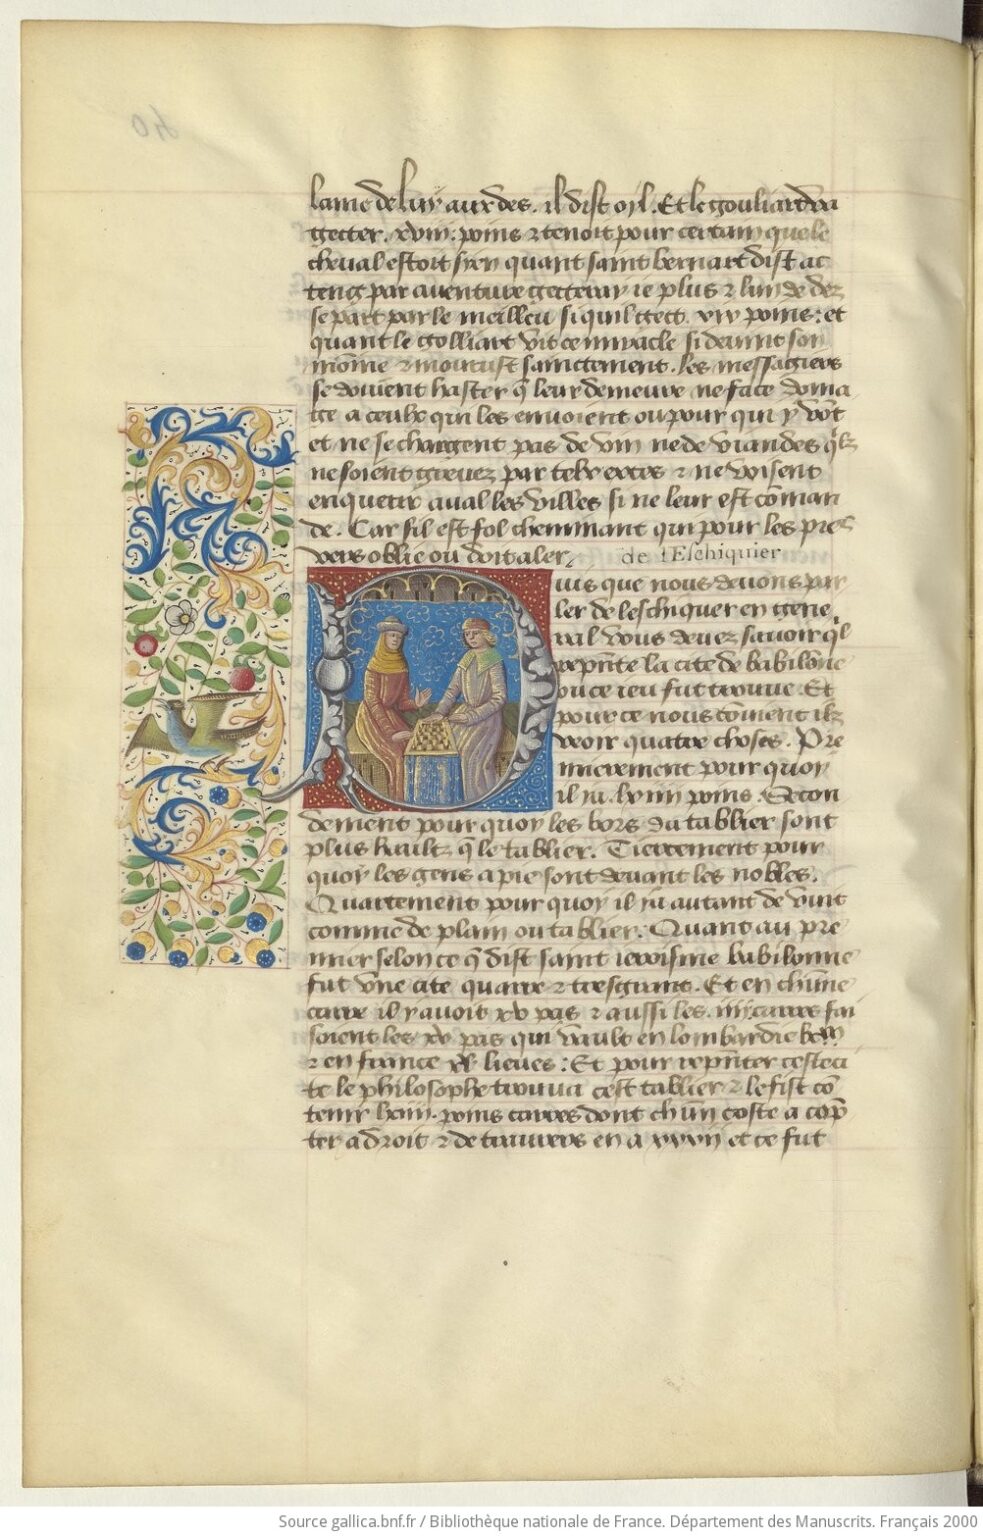 lame de luy aux des. il dist oil. Et le gouliard va
getter. xviii. poins ⁊ tenoit pour certain que le
cheval estoit sien quant saint bernart dist ac
teng par aventure getteray ie plus ⁊ lun de dez
se part par le meilleu si quil gect. xix poins: et
quant le golliart vit ce miracle si devint son
moīne ⁊ mourust sainctement. les messagiers
se doivent haster q̄ leur demeure ne face doma
ge a ceulx qui les envoient ou pour qui y vōt
et ne se chargent pas de vin ne de viandes q̄lz
ne soient grevez par telx exces ⁊ ne voisent
enquerir aval les villes si ne leur est cōman
de. Car sil est fol cheminant qui pour les prez
vers oblie ou doit aler.
de lEschiquier
uis que nous devons par
ler de leschiquer en gene
ral vous devez savoir q̄l
rep̄nte la cite de babilōne
ou ce ieu fut trouve. Et
pour ce nous cōvient ilz
veoir quatre choses. Pre
mierement pour quoy
il ia. lxiiii poins. Secon
dement pour quoy les bors du tablier sont
plus haultz q̄ le tablier. Tiercement pour
quoy les gens a pie sont devant les nobles.
Quartement pour quoy il ia autant de vuit
comme de plain ou tablier. Quant au pre
mier selon ce q̄ dist saint ieroisme babilonne
fut vne cite quarre ⁊ tresgrant. Et en chūne
carre il y avoit xv pas ⁊ aussi les. iiii. carres fai
soient les xv pas qui vault en lombardie
⁊ en france lieues: Et pour rep̄nter ceste ci
te le philosophe trouva cest tablier ⁊ le fist cō
tenir lxiiii. poins carres dont ch'un coste a cōp
ter a droit ⁊ de travers en a xxxii et ce fut
Source gallica.bnf.fr / Bibliothèque nationale de France. Département des Manuscrits. Français 2000